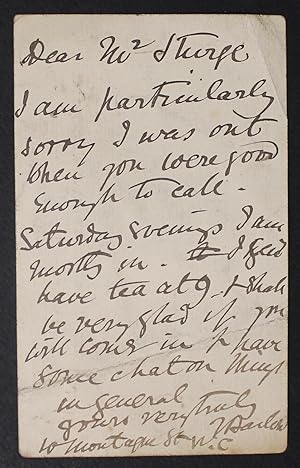 Dear Mr Sturge
I am particularly
sorry I was out
when you were good
enough to call.
Saturday evenings I am
mostly in. I
have tea at 9 & shall
be very glad if you
will come in & have
some chat on things
in general
yours very truly
10 Montague St W.C